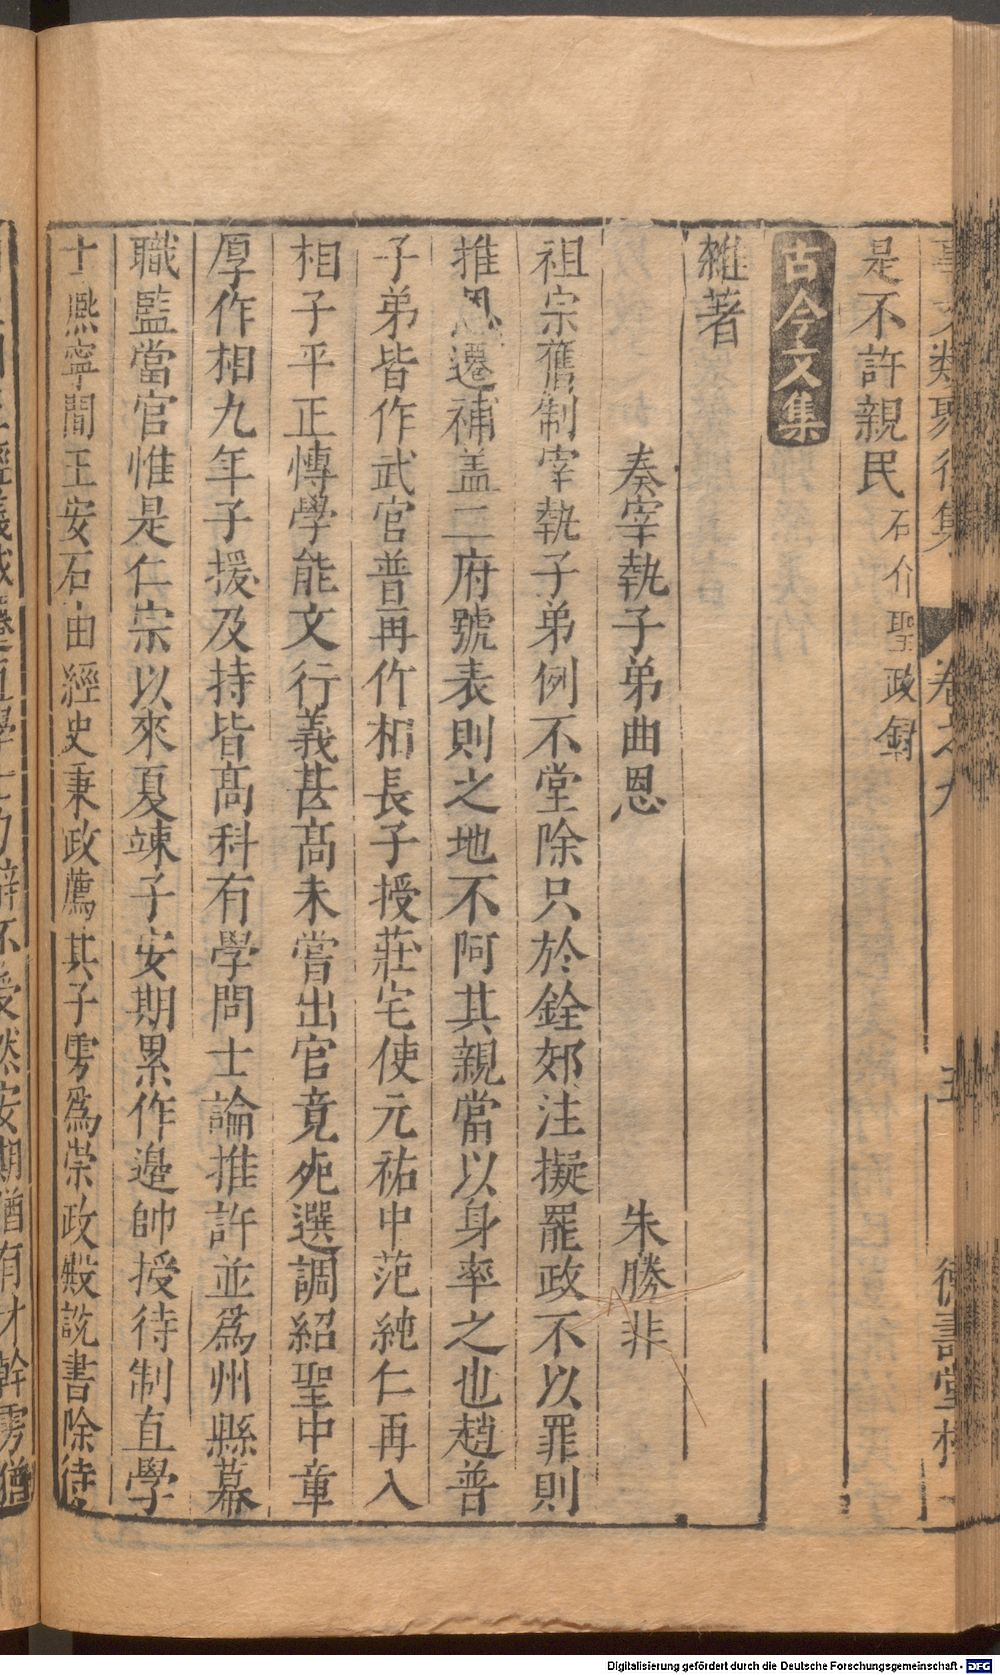 事文類聚後集 卷之九 五 德壽堂梓
是不許親民石介聖政錄
古今文集
雜著
奏宰執子弟曲恩 朱勝非
祖宗舊制宰執子弟例不堂除只於銓部注擬罷政不以罪則
推恩遷補盖二府號表則之地不阿其親當以身率之也趙普
子弟皆作武官普再作相長子授莊宅使元祐中范純仁再入
相子平正愽學能文行義甚髙未嘗出官竟死選調紹聖中章
厚作相九年子援及持皆髙科有學問士論推許並爲州縣幕
職監當官惟是仁宗以來夏竦子安期累作邉帥授待制直學
士熈寧間王安石由經史秉政薦其子雱爲崇政殿說書除待
Digitalisierung gefördert durch die Deutsche Forschungsgemeinschaft - DFG